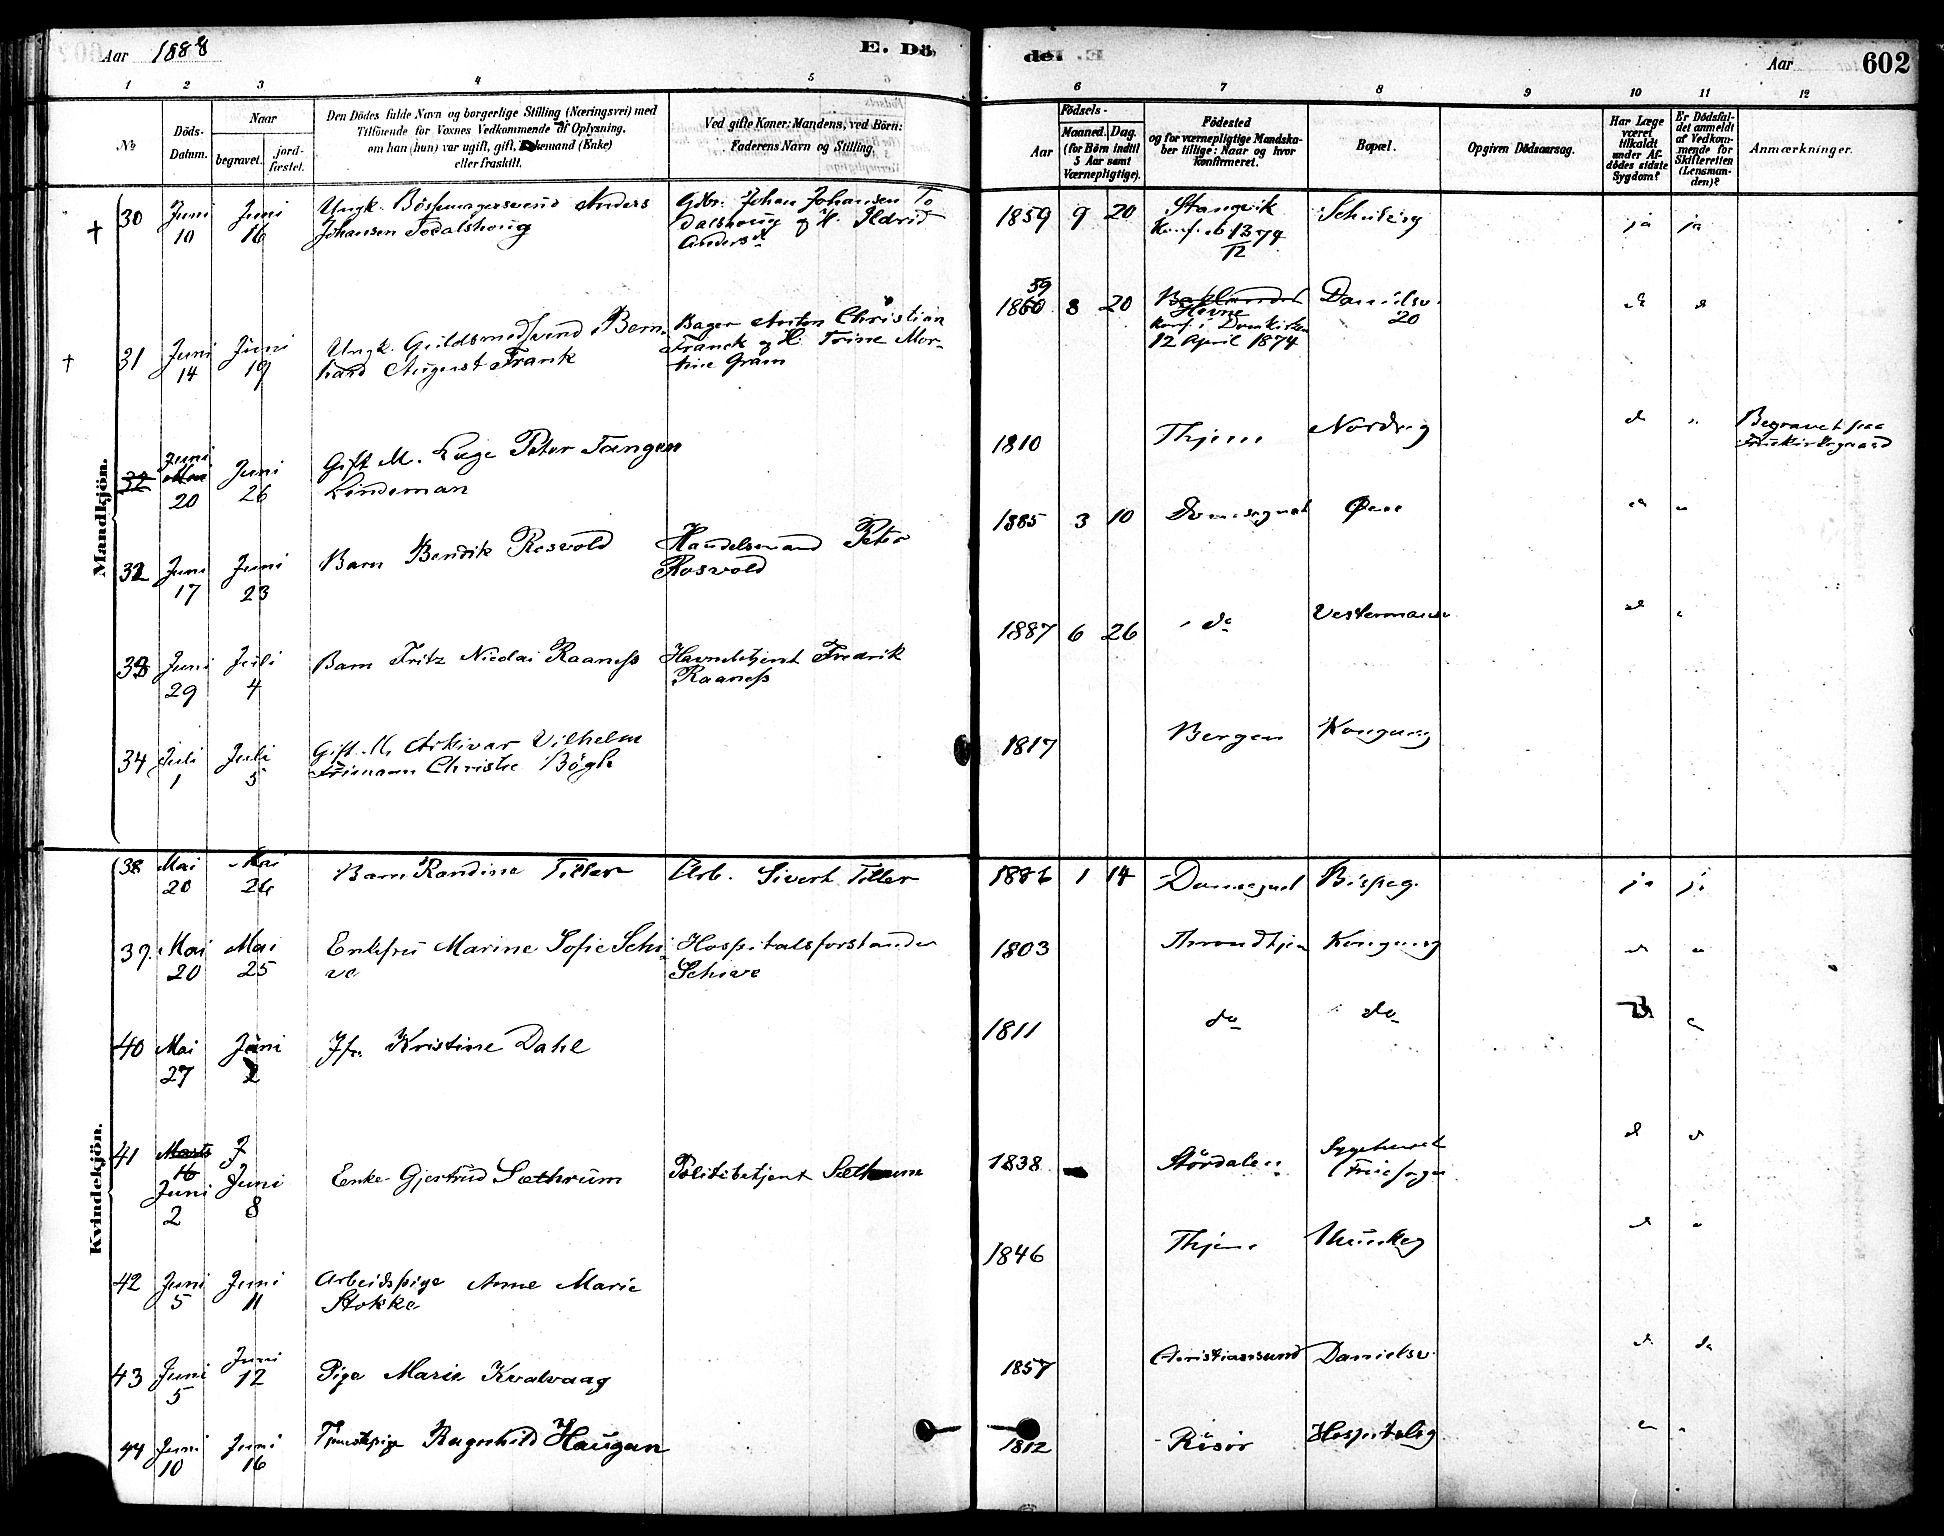 Aar 1888
E. Dö
del
Aar
602
1 2 3 4 5 6 7 8 9 10 11 12
No
Döds-Datum.
Naar
begravet.
jord-fæstet.
Den Dödes fulde Navn og borgerlige Stilling (Næringsvei) med
Tilföiende for Voxnes Vedkommende af Oplysning,
om han (hun) var ugift, gift, Enkemand (Enke)
eller fraskilt.
Ved gifte Koner: Mandens, ved Börn:
Faderens Navn og Stilling.
Födsels-
Aar
Maaned. Dag.
(for Börn indtil
5 Aar samt
Værnepligtige).
Födested
og for værnepligtige Mandska-
ber tillige: Naar og hvor
konfirmeret.
Bopæl.
Opgiven Dödsaarsag.
Har Læge
været
tilkaldt
under Af-
dödes sidste
Sygdom?
Er Dödsfal-
det anmeldt
af Vedkom-
mende for
Skifteretten
(Lensman-
den)?
Anmærkninger.
Mandkjön.
30 Juni 10 Juni 16
Ungk. Bössemagersvend Anders
Johansen Todalshoug
Gbr. Johan Johansen To
dalshoug og H. Ildrid
Andersd
1859 9 20
Stangvik
Konf.
Schulzeg
ja ja
31 Juni 14 Juni 19
Ungk. Guldsmedsvend Bern-
hard August Frank
Bager Anton Christian
Franck og H. Trine Mor-
tine Gram
59
1860 8 20
Baklandet
Hevne
Konf. i Domkirken
12 April 1874
Danielsv.
20
32 Juni
Mai
20 Juni 26
Gift M. Læge Peter Tangen
Lindeman
1810
Thjem
Nordreg
Begravet paa
Fruekirkegaard
32 Juni 17 Juni 23
Barn Bendik Rosvold
Handelsmand Peter
Rosvold
1885 3 10
Domsognet
Øren
33 Juni 29 Juli 4
Barn Fritz Nicolai Raaness
Havnebetjent Fredrik
Raaness
1887 6 26
do
34 Juli 1 Juli 5
Gift M. Arkivar Vilhelm
Frimann Christie Bøgh
1817
Bergen
Kongensg
Kvindekjön.
38 Mai 20 Mai 26
Barn Randine Tiller
Arb. Sivert Tiller
1886 1 14
Domsognet
Bispeg.
ja ja
39. Mai 20 Mai 25
Enkefru Marine Sofie Schi-
ve
Hospitalsforstander
Schive
1803
Throndhjem
Kongensg
40 Mai 27 Juni 2
Jfr. Kristine Dahl
1811
do
do
41 Marts
16
Juni
2
J
Juni
8
Enke Gjertrud Sæthrum
Politibetjent Sæthrum
1838
Størdalen
Sygehuset
42 Juni 5 Juni 11
Arbeidspige Anne Marie
Stokke
1846
Thjem
Munkeg
43 Juni 5 Juni 12
Pige Marie Kvalvaag
1857
Christiansund
Danielsv.
do
44 Juni 10 Juni 16
Tjenestepige Ragnhild Haugan
1812
Risør
Hospitalsg.